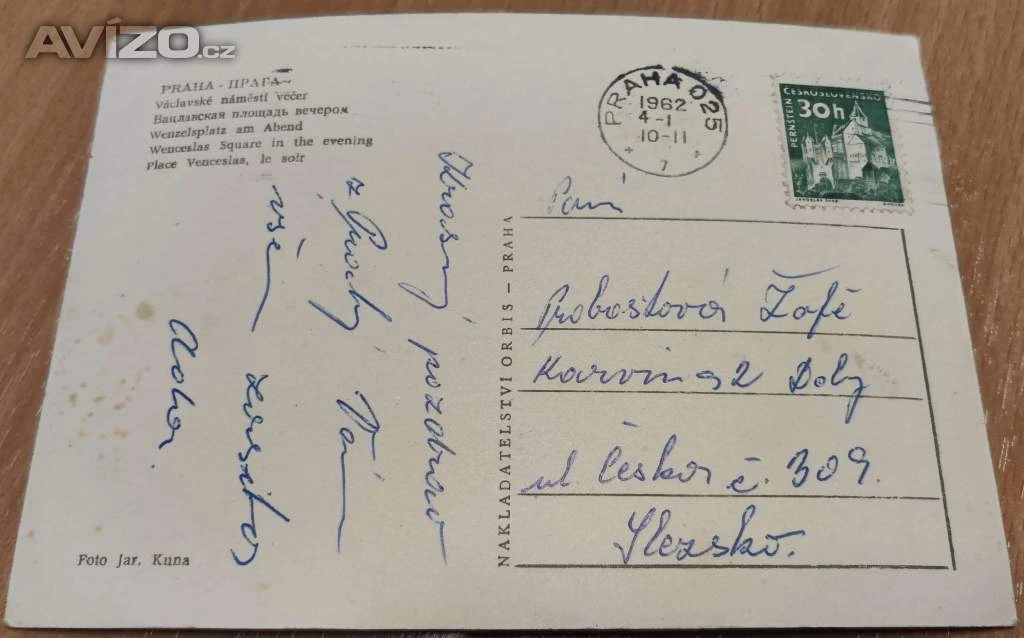 AVÍZO.cz
PRAHA - ПРАГА
Václavské náměstí večer
Вацлавская площадь вечером
Wenzelsplatz am Abend
Wenceslas Square in the evening
Place Venceslas, le soir
PRAHA 025
1962
4-1
10-11
7
ČESKOSLOVENSKO
30h
PERNŠTEJN
pozdrav
z Prahy Vám
všem
Foto Jar. Kuna
NAKLADATELSTVÍ ORBIS - PRAHA
Paní
Proboštová Žofé
Karvina 2 Doly
ul Česka č. 309.
Slezsko.